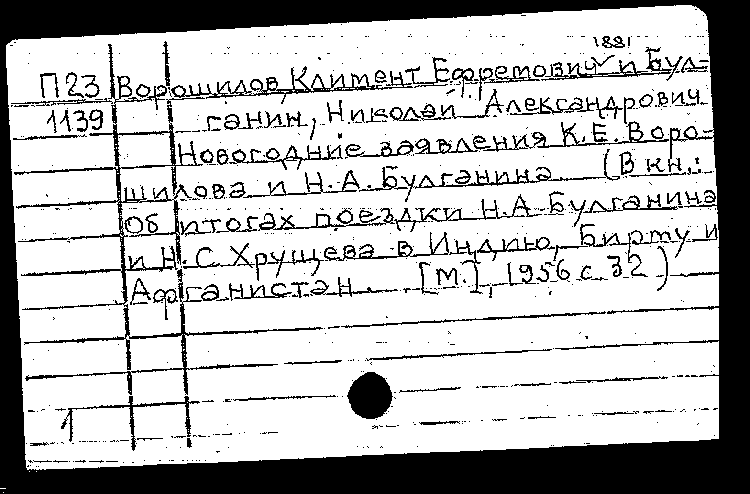 1881
П23 Ворошилов, Климент Ефремович и Бул=
1139 ганин, Николай Александрович
Новогодние заявления К.Е. Воро=
шилова и Н.А. Булганина. (В кн.:
Об итогах поездки Н.А Булганина
и Н.С. Хрущева в Индию, Бирму и
Афганистан. [М.], 1956 с. 32)
1